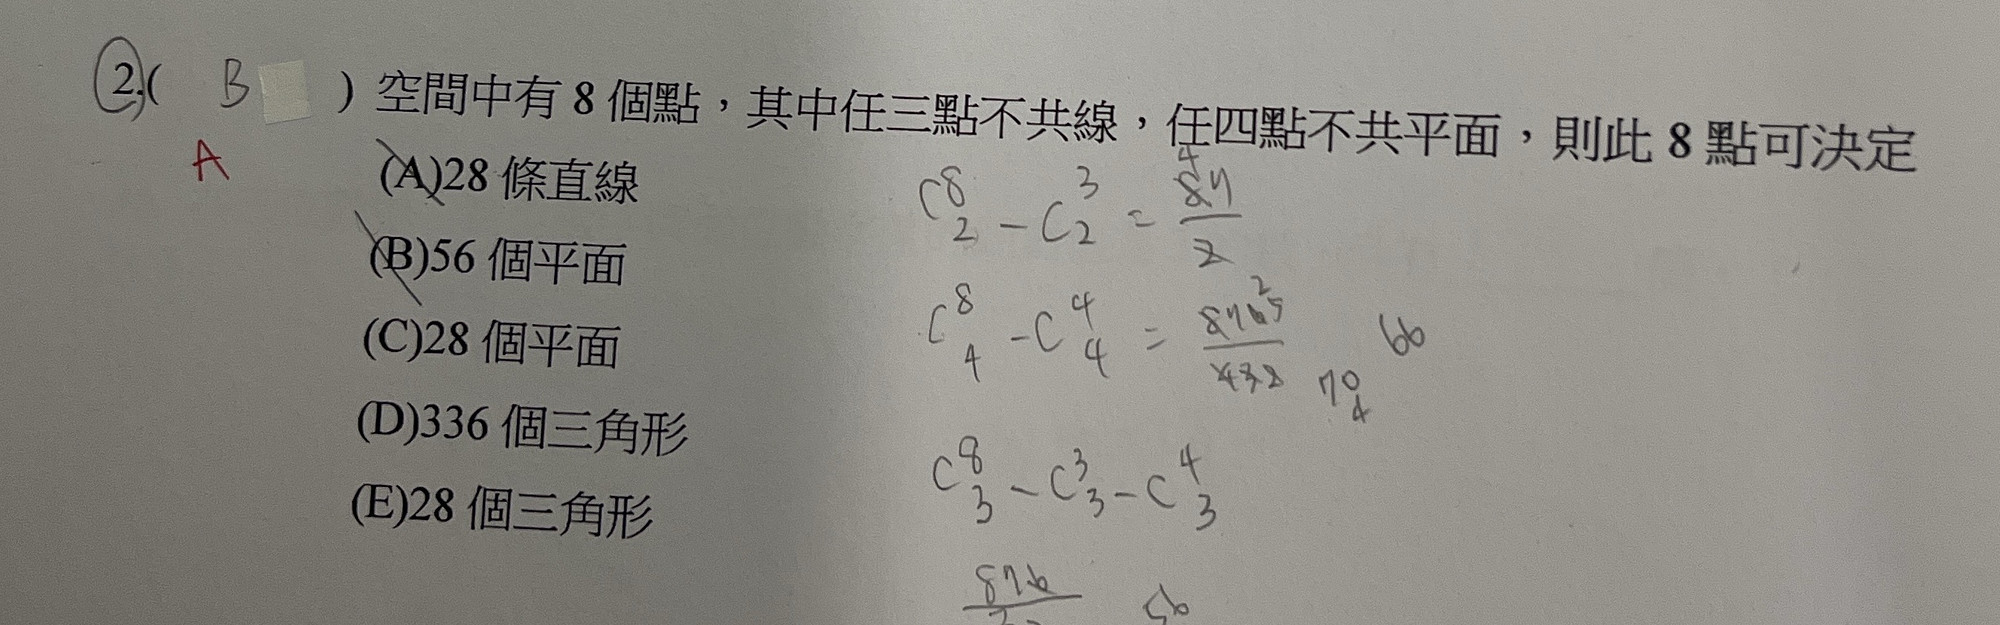 2.( B ) 空間中有 8 個點，其中任三點不共線，任四點不共平面，則此 8 點可決定
A
(A)28 條直線
(B)56 個平面
(C)28 個平面
(D)336 個三角形
(E)28 個三角形
C⁸₂ - C³₂ = 87/2 4
C⁸₄ - C⁴₄ = 8765/432 2 70 4 66
C⁸₃ - C³₃ - C⁴₃
876 56